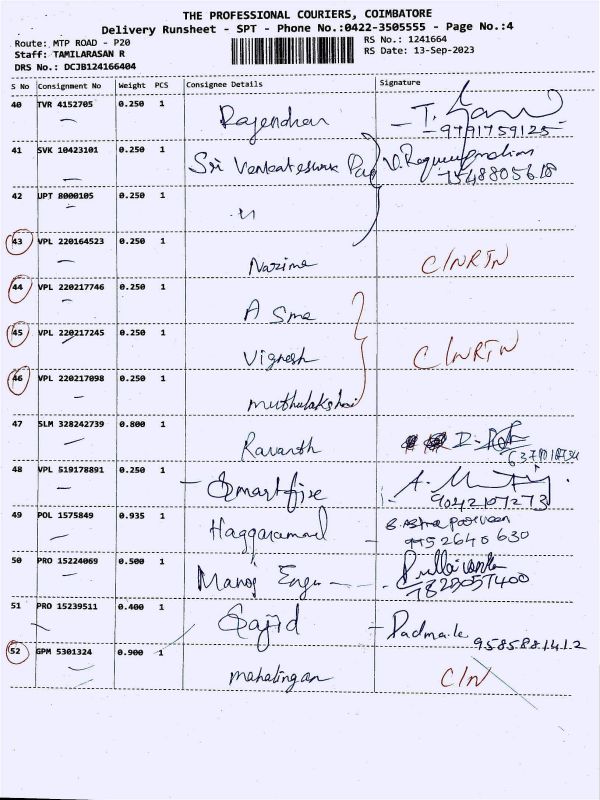 THE PROFESSIONAL COURIERS, COIMBATORE
Delivery Runsheet - SPT - Phone No.:0422-3505555 - Page No.:4
Route: MTP ROAD - P20 RS No.: 1241664
Staff: TAMILARASAN R RS Date: 13-Sep-2023
DRS No.: DCJB124166404
S No Consignment No Weight PCS Consignee Details Signature
40 TVR 4152705 0.250 1
Rajendran
9791759125
41 SVK 10423101 0.250 1
Sri Venkateshwa
7548805618
42 UPT 8000105 0.250 1
43 VPL 220164523 0.250 1
Nazima C/NRTN
44 VPL 220217746 0.250 1
A Sma
45 VPL 220217245 0.250 1
Vignesh C/NRTN
46 VPL 220217098 0.250 1
Muthulakshmi
47 SLM 328242739 0.800 1
Ravanth
48 VPL 519178891 0.250 1
Smartfire
9042107273
49 POL 1575849 0.935 1
9952640630
50 PRO 15224069 0.500 1
Manoj Engu
7829057400
51 PRO 15239511 0.400 1
Sajid
9585881412
52 GPM 5301324 0.900 1
mahalingan C/N